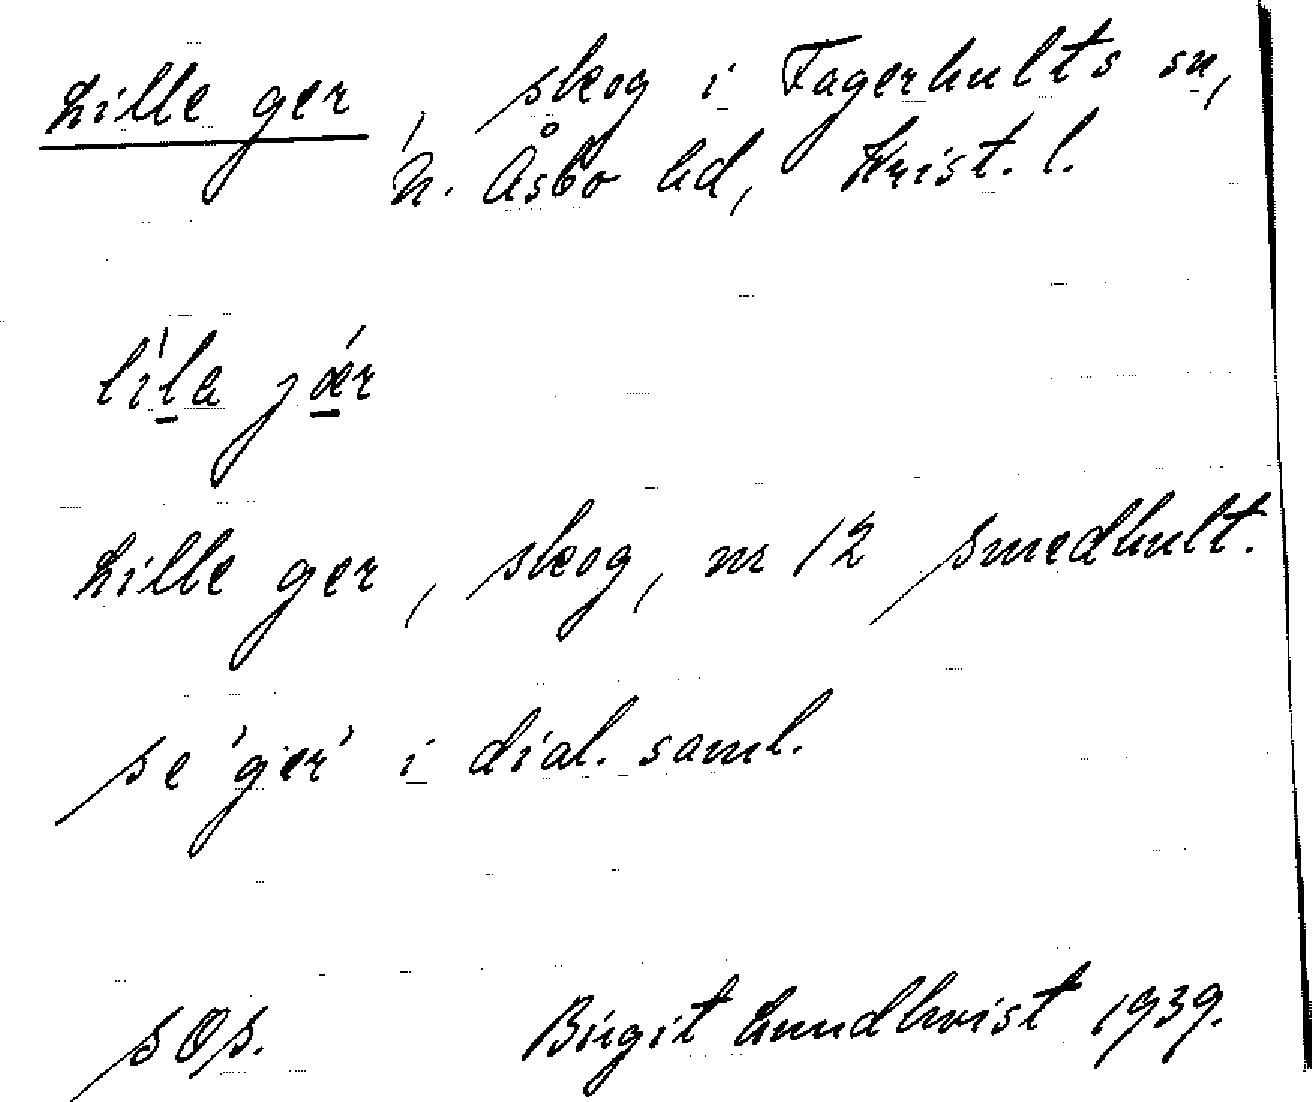 Lille ger, skog i Fagerhults sn,
N. Åsbo hd, Krist. l.
líla jǽr
Lille ger, skog, nr 12 Smedhult.
se 'ger' i dial. saml.
SOS. Birgit Lundkvist 1939.